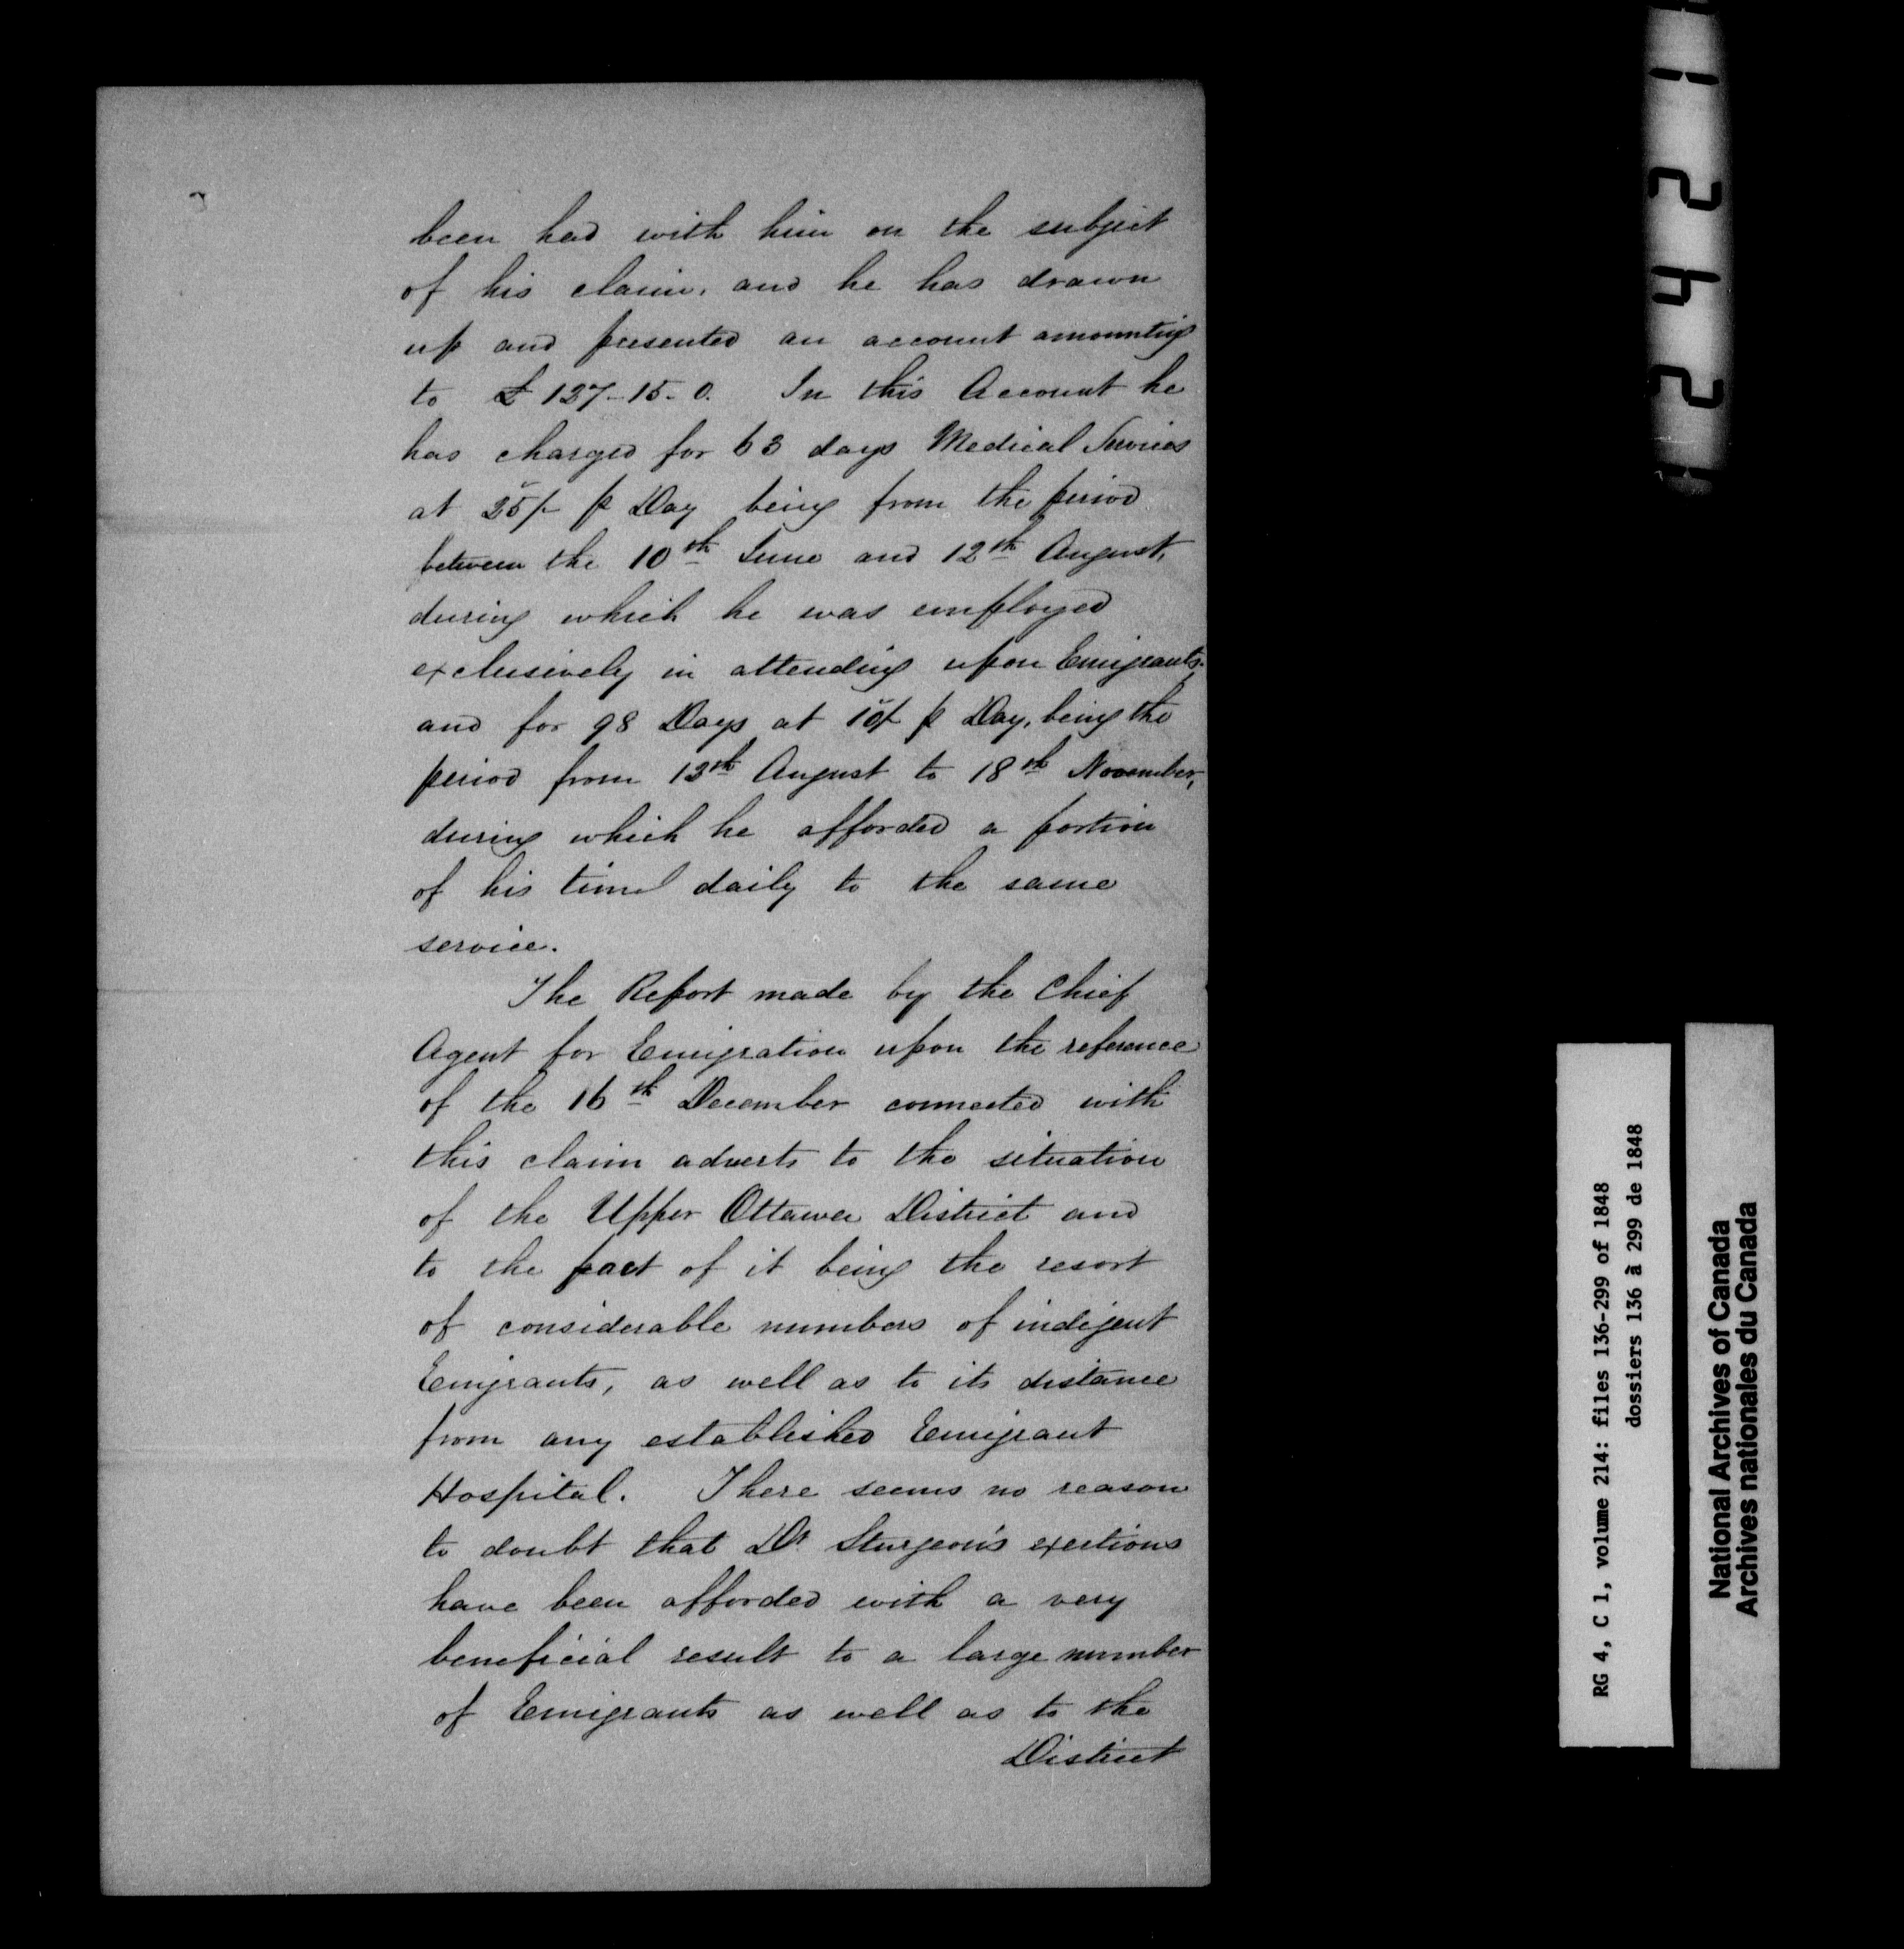 been had with him on the subject
of his claim, and he has drawn
up and presented an account amounting
to £127-15-0. In this Account he
has charged for 63 days Medical Services
at 25/- p Day being from the period
between the 10th June and 12th August,
during which he was employed
exclusively in attending upon Emigrants,
and for 98 Days at 10/- p Day, being the
period from 13th August to 18th November,
during which he afforded a portion
of his time daily to the same
service.
The Report made by the Chief
Agent for Emigration upon the reference
of the 16th December connected with
this claim adverts to the situation
of the Upper Ottawa District and
to the fact of it being the resort
of considerable numbers of indigent
Emigrants, as well as to its distance
from any established Emigrant
Hospital. There seems no reason
to doubt that Dr Sturgeon's exertions
have been afforded with a very
beneficial result to a large number
of Emigrants as well as to the
District
1 2 4 2
RG 4, C 1, volume 214: files 136-299 of 1848
dossiers 136 à 299 de 1848
National Archives of Canada
Archives nationales du Canada